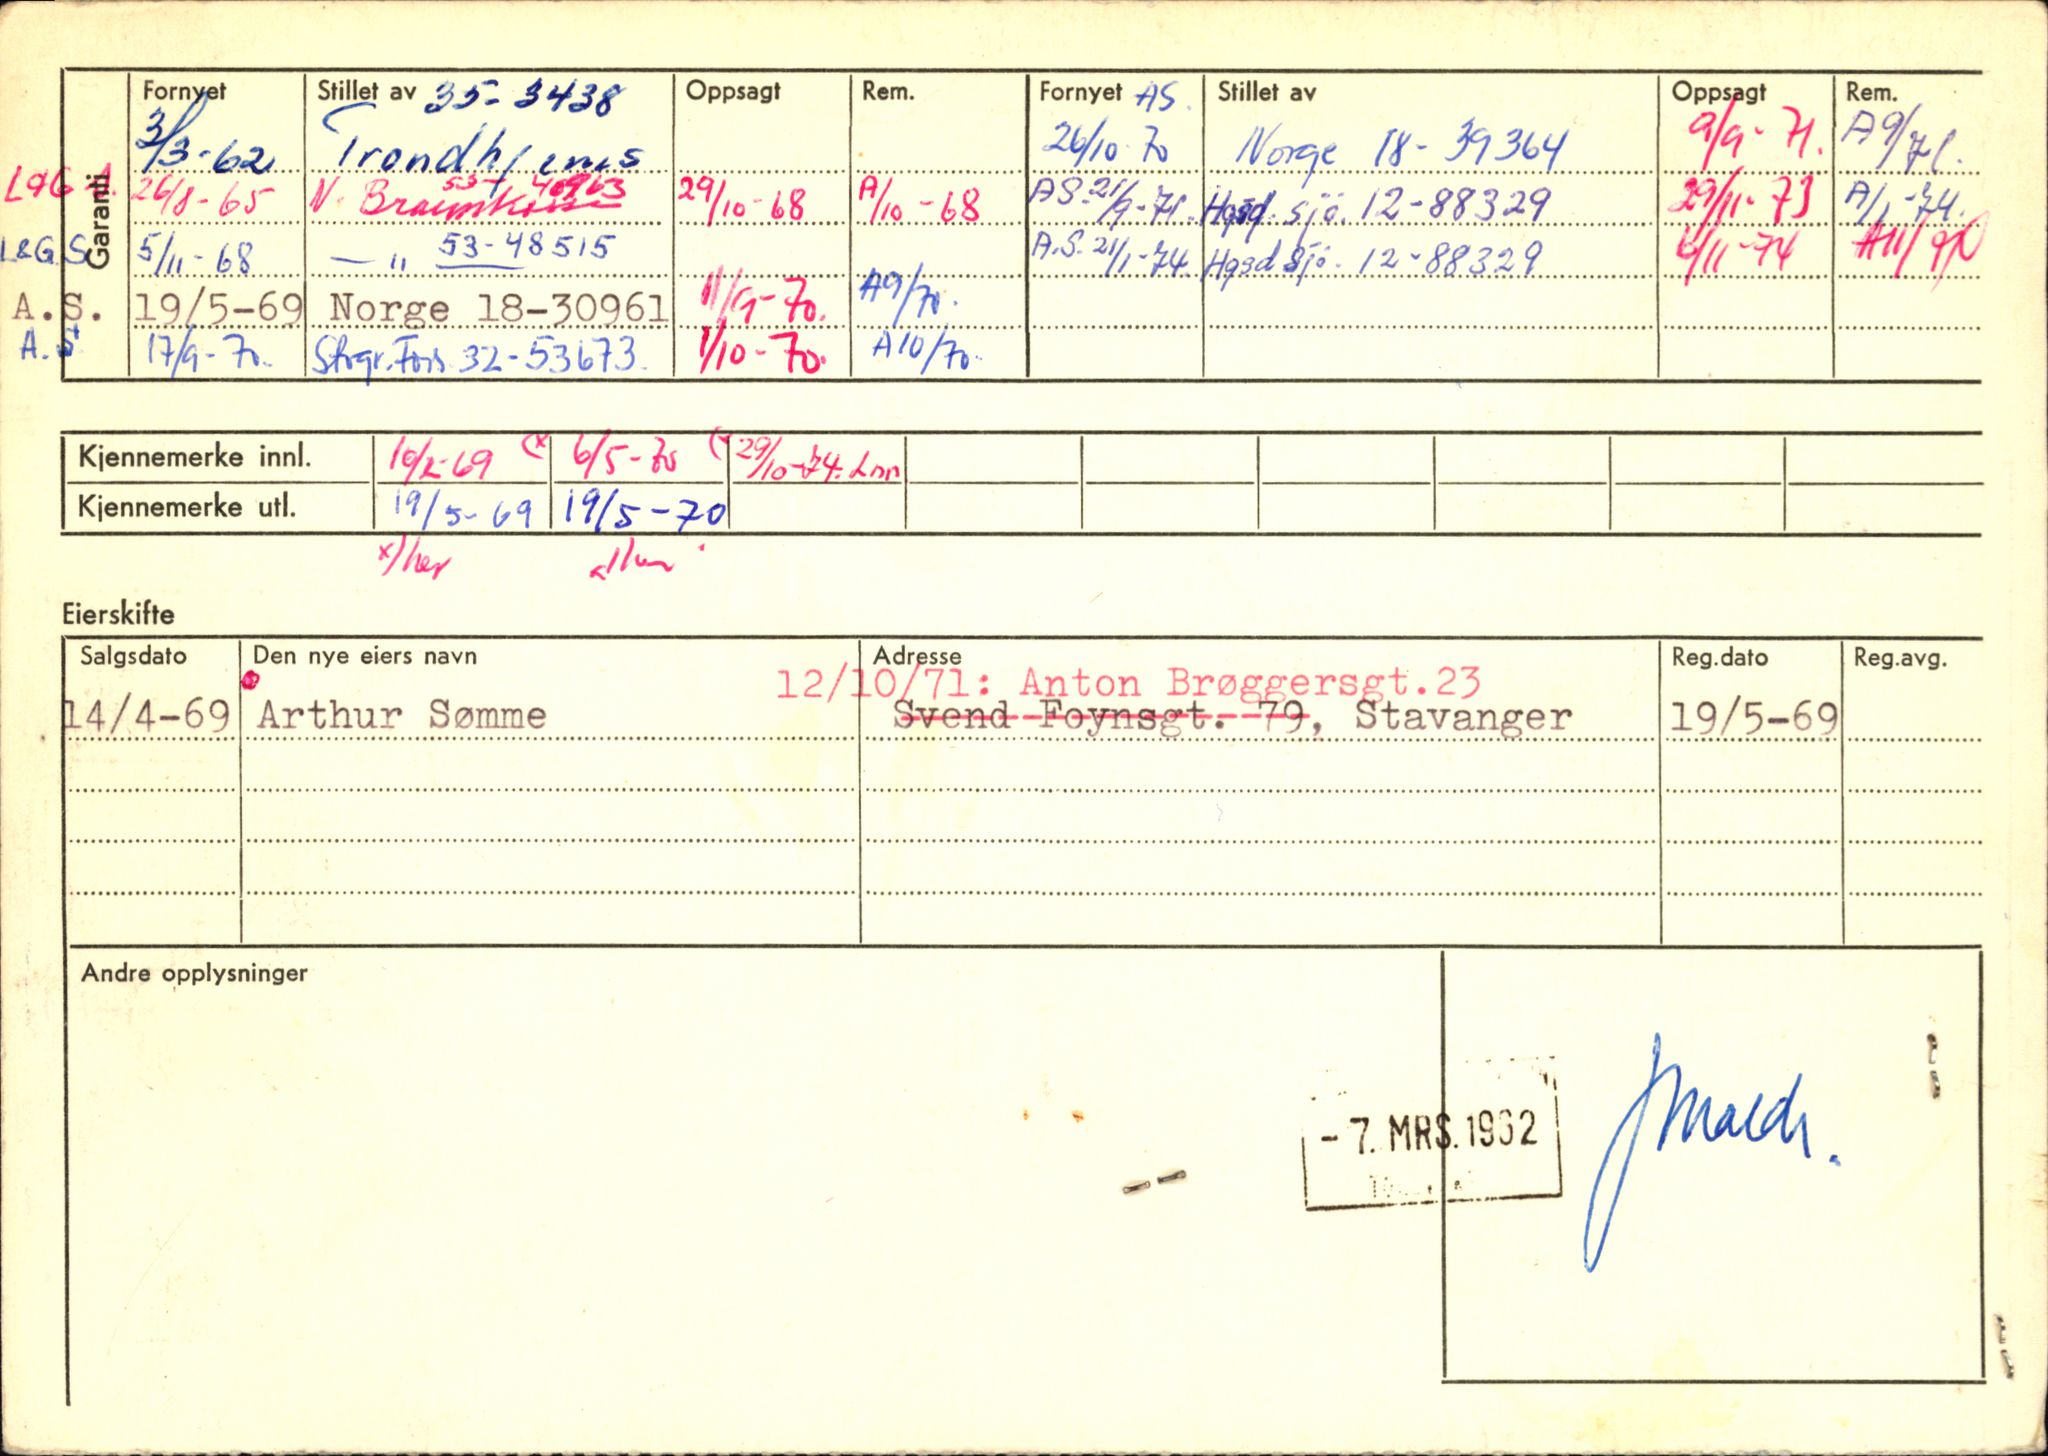 Garanti
Fornyet Stillet av 35-3438 Oppsagt Rem. Fornyet AS. Stillet av Oppsagt Rem.
3/3-62 Trondhjems 26/10-70 Norge 18-39364 9/9-71. A9/71.
L&G A. 26/8-65 N. Brannkasse 29/10-68 A/10-68 A.S. 21/9-71. Hgsd. sjø. 12-88329 29/11-73 A/1-74.
L&G S. 5/11-68 — " 53-48515 A.S. 21/1-74 Hgsd sjø. 12-88329 /11-74
A.S. 19/5-69 Norge 18-30961 11/9-70. A9/70.
A.S 17/9-70. Strgr. Fors. 32-53673. 1/10-70. A10/70.
Kjennemerke innl. 10/2-69 (x 6/5-70 29/10-74.
Kjennemerke utl. 19/5-69 19/5-70
x) her
Eierskifte
Salgsdato Den nye eiers navn Adresse Reg.dato Reg.avg.
12/10/71: Anton Brøggersgt.23
14/4-69 Arthur Sømme Svend Foynsgt. 79, Stavanger 19/5-69
Andre opplysninger
-7. MRS. 1962